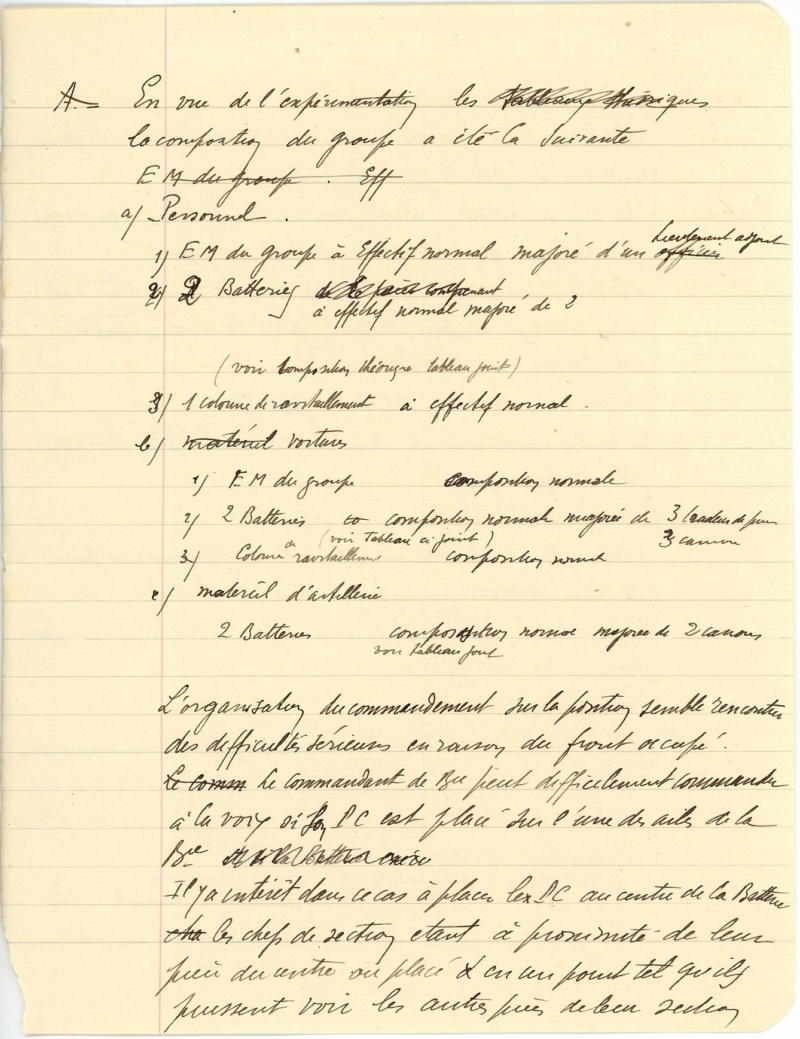 A.= En vue de l'expérimentation les tableaux théoriques
la composition du groupe a été la suivante
EM du groupe. Eff
a/ Personnel.
lieutenant adjoint
1) EM du groupe à Effectif normal majoré d'un officier
2) 2 Batteries
à effectif normal majoré de 2
(voir composition théorique tableau joint)
3) 1 colonne de ravitaillement à effectif normal.
b/ matériel voitures
1) EM du groupe composition normale
2) 2 Batteries composition normale majorée de 3
(voir Tableau ci joint) 3 canon
3) Colonne de ravitaillement composition normale
c) matériel d'artillerie
2 Batteries composition normale majorée de 2 canons
voir tableau joint
L'organisation du commandement sur la position semble rencontrer
des difficultés sérieuses en raison du front occupé.
Le comm Le commandant de Bie peut difficilement commander
à la voix si son PC est placé sur l'une des ailes de la
Bie
Il y a intérêt dans ce cas à placer le PC au centre de la Batterie
les chefs de section étant à proximité de leur
pièce du centre ou placé en un point tel qu'ils
puissent voir les autres pièces de leur section